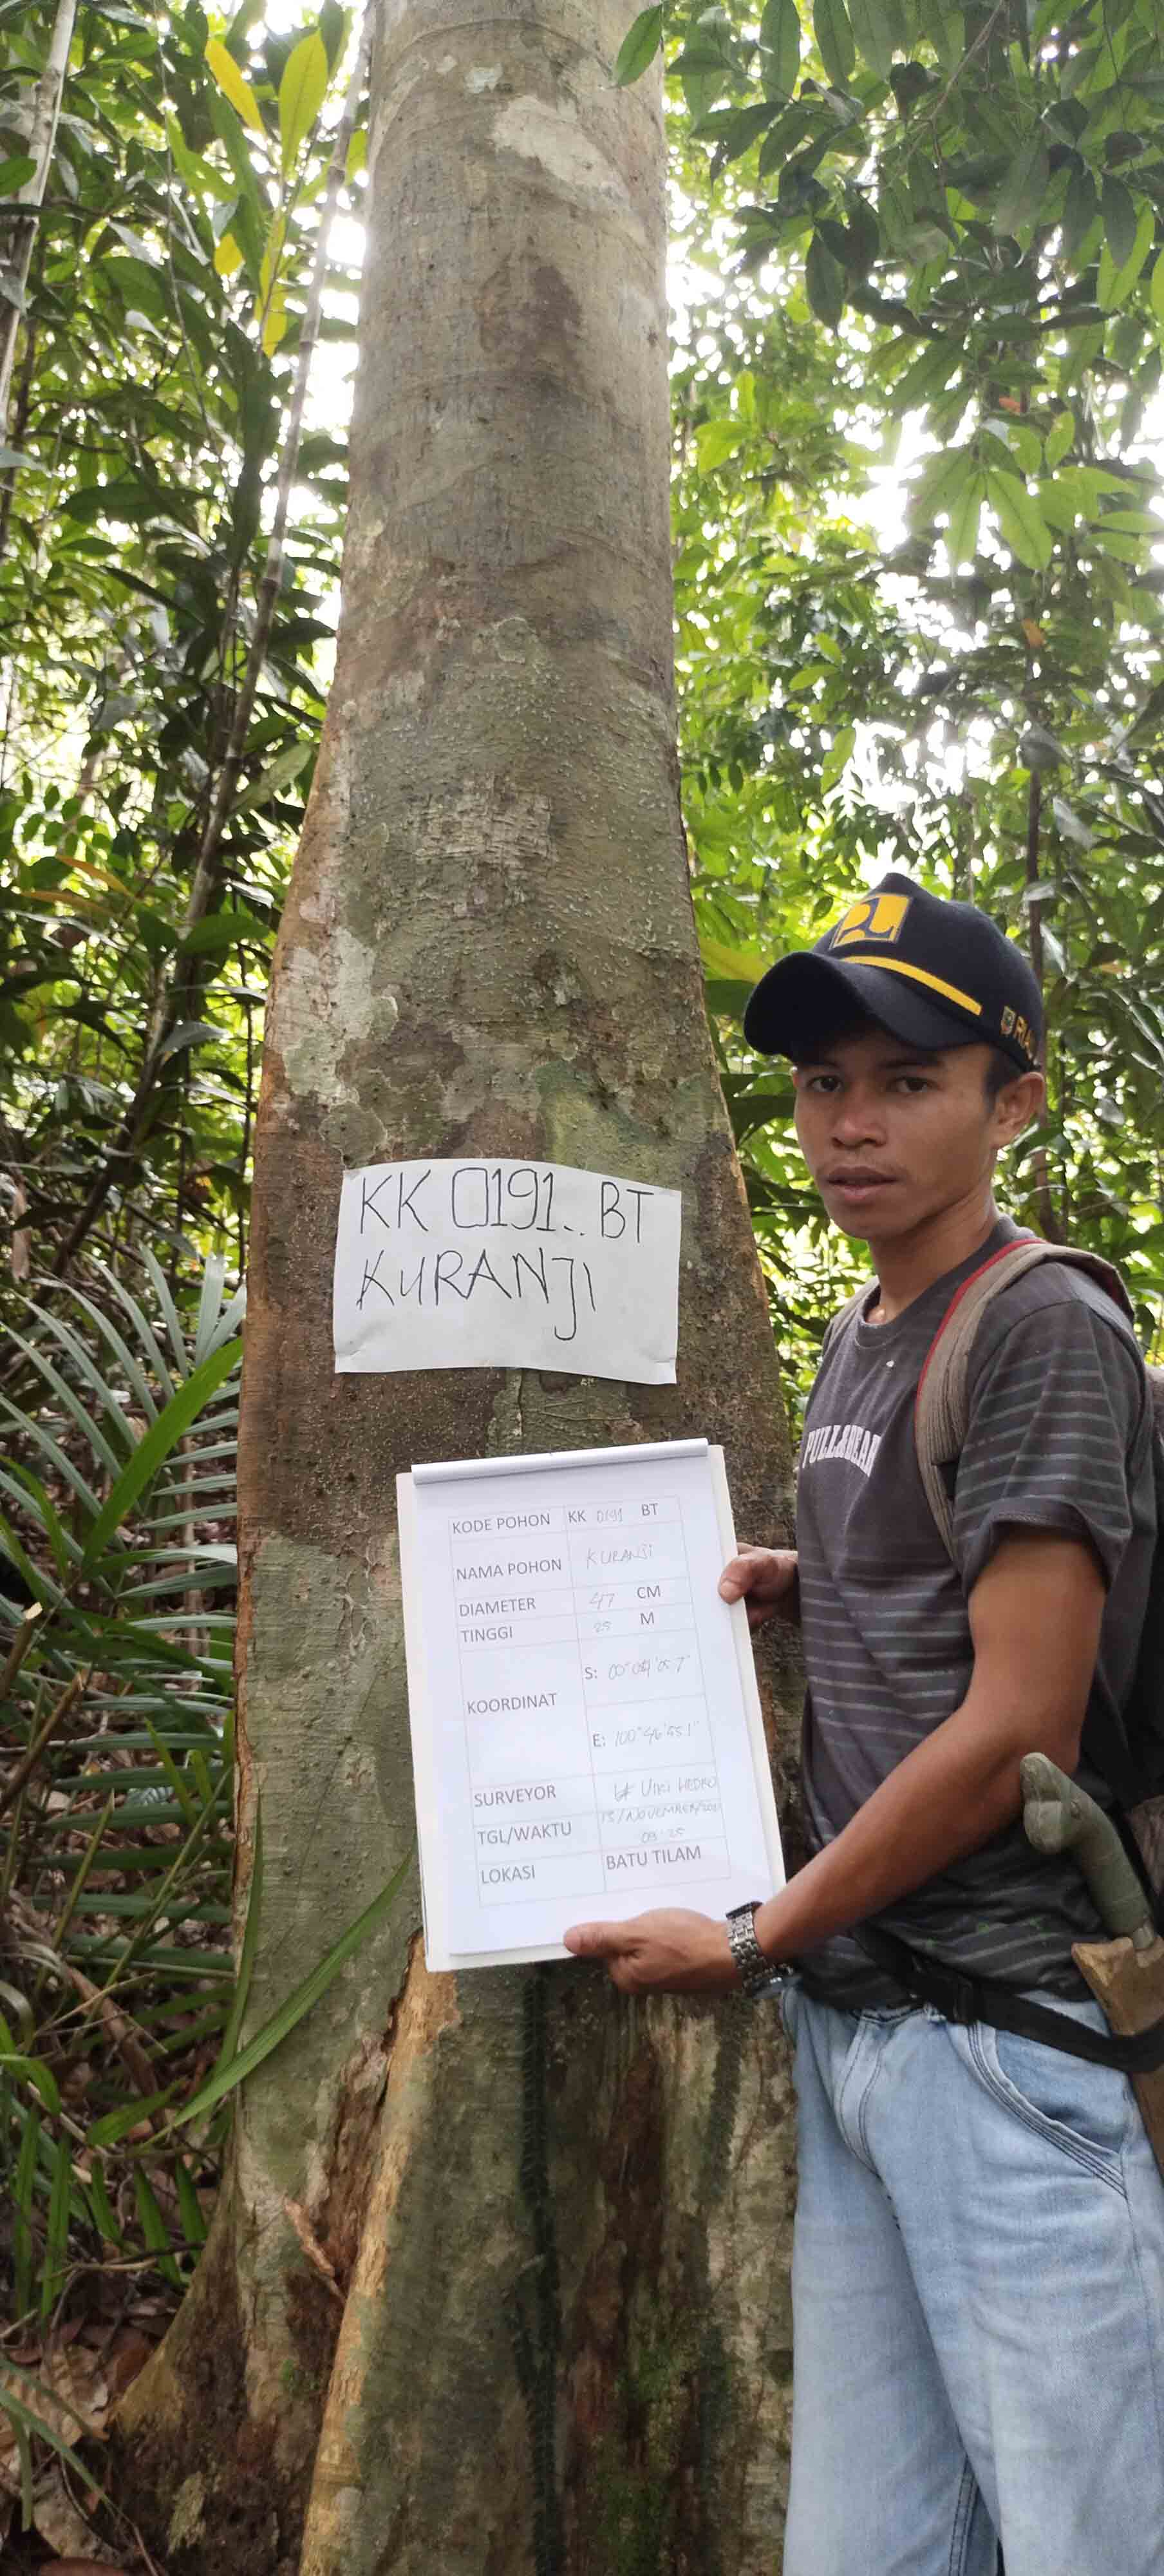 KK 0191.. BT
KURANJI
KODE POHON KK 0191 BT
NAMA POHON KURANJI
DIAMETER 47 CM
TINGGI 25 M
KOORDINAT
S:
E: 100°46'551"
SURVEYOR HEDRO
TGL/WAKTU 13/NOVEMBER/
LOKASI BATU TILAM